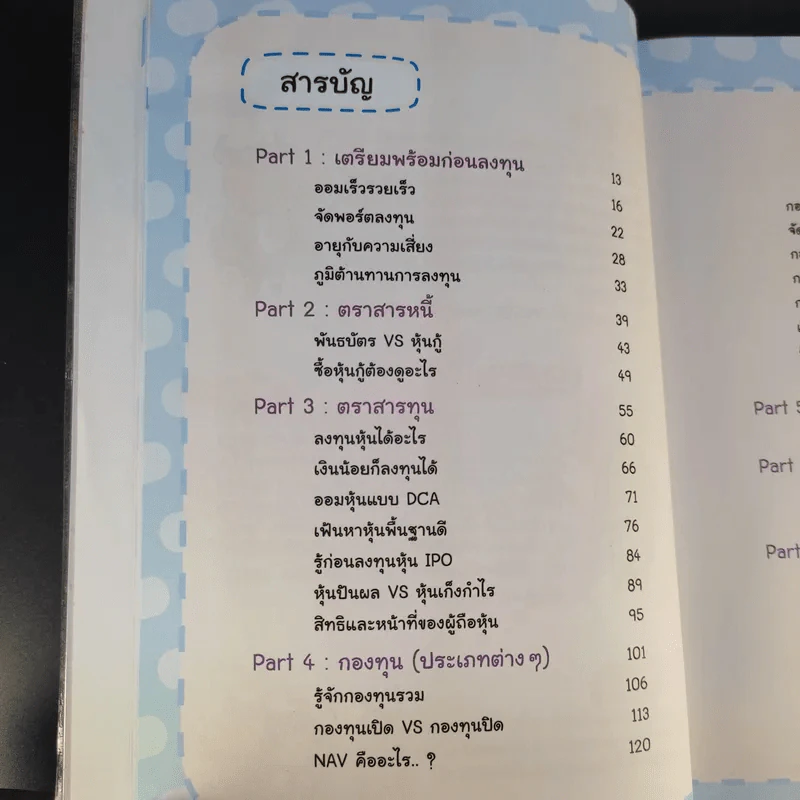 สารบัญ
Part 1 : เตรียมพร้อมก่อนลงทุน 13
ออมเร็วรวยเร็ว 16
จัดพอร์ตลงทุน 22
อายุกับความเสี่ยง 28
ภูมิต้านทานการลงทุน 33
Part 2 : ตราสารหนี้ 39
พันธบัตร VS หุ้นกู้ 43
ซื้อหุ้นกู้ต้องดูอะไร 49
Part 3 : ตราสารทุน 55
ลงทุนหุ้นได้อะไร 60
เงินน้อยก็ลงทุนได้ 66
ออมหุ้นแบบ DCA 71
เฟ้นหาหุ้นพื้นฐานดี 76
รู้ก่อนลงทุนหุ้น IPO 84
หุ้นปันผล VS หุ้นเก็งกำไร 89
สิทธิและหน้าที่ของผู้ถือหุ้น 95
Part 4 : กองทุน (ประเภทต่าง ๆ) 101
รู้จักกองทุนรวม 106
กองทุนเปิด VS กองทุนปิด 113
NAV คืออะไร.. ? 120
Part 5
Part
Part